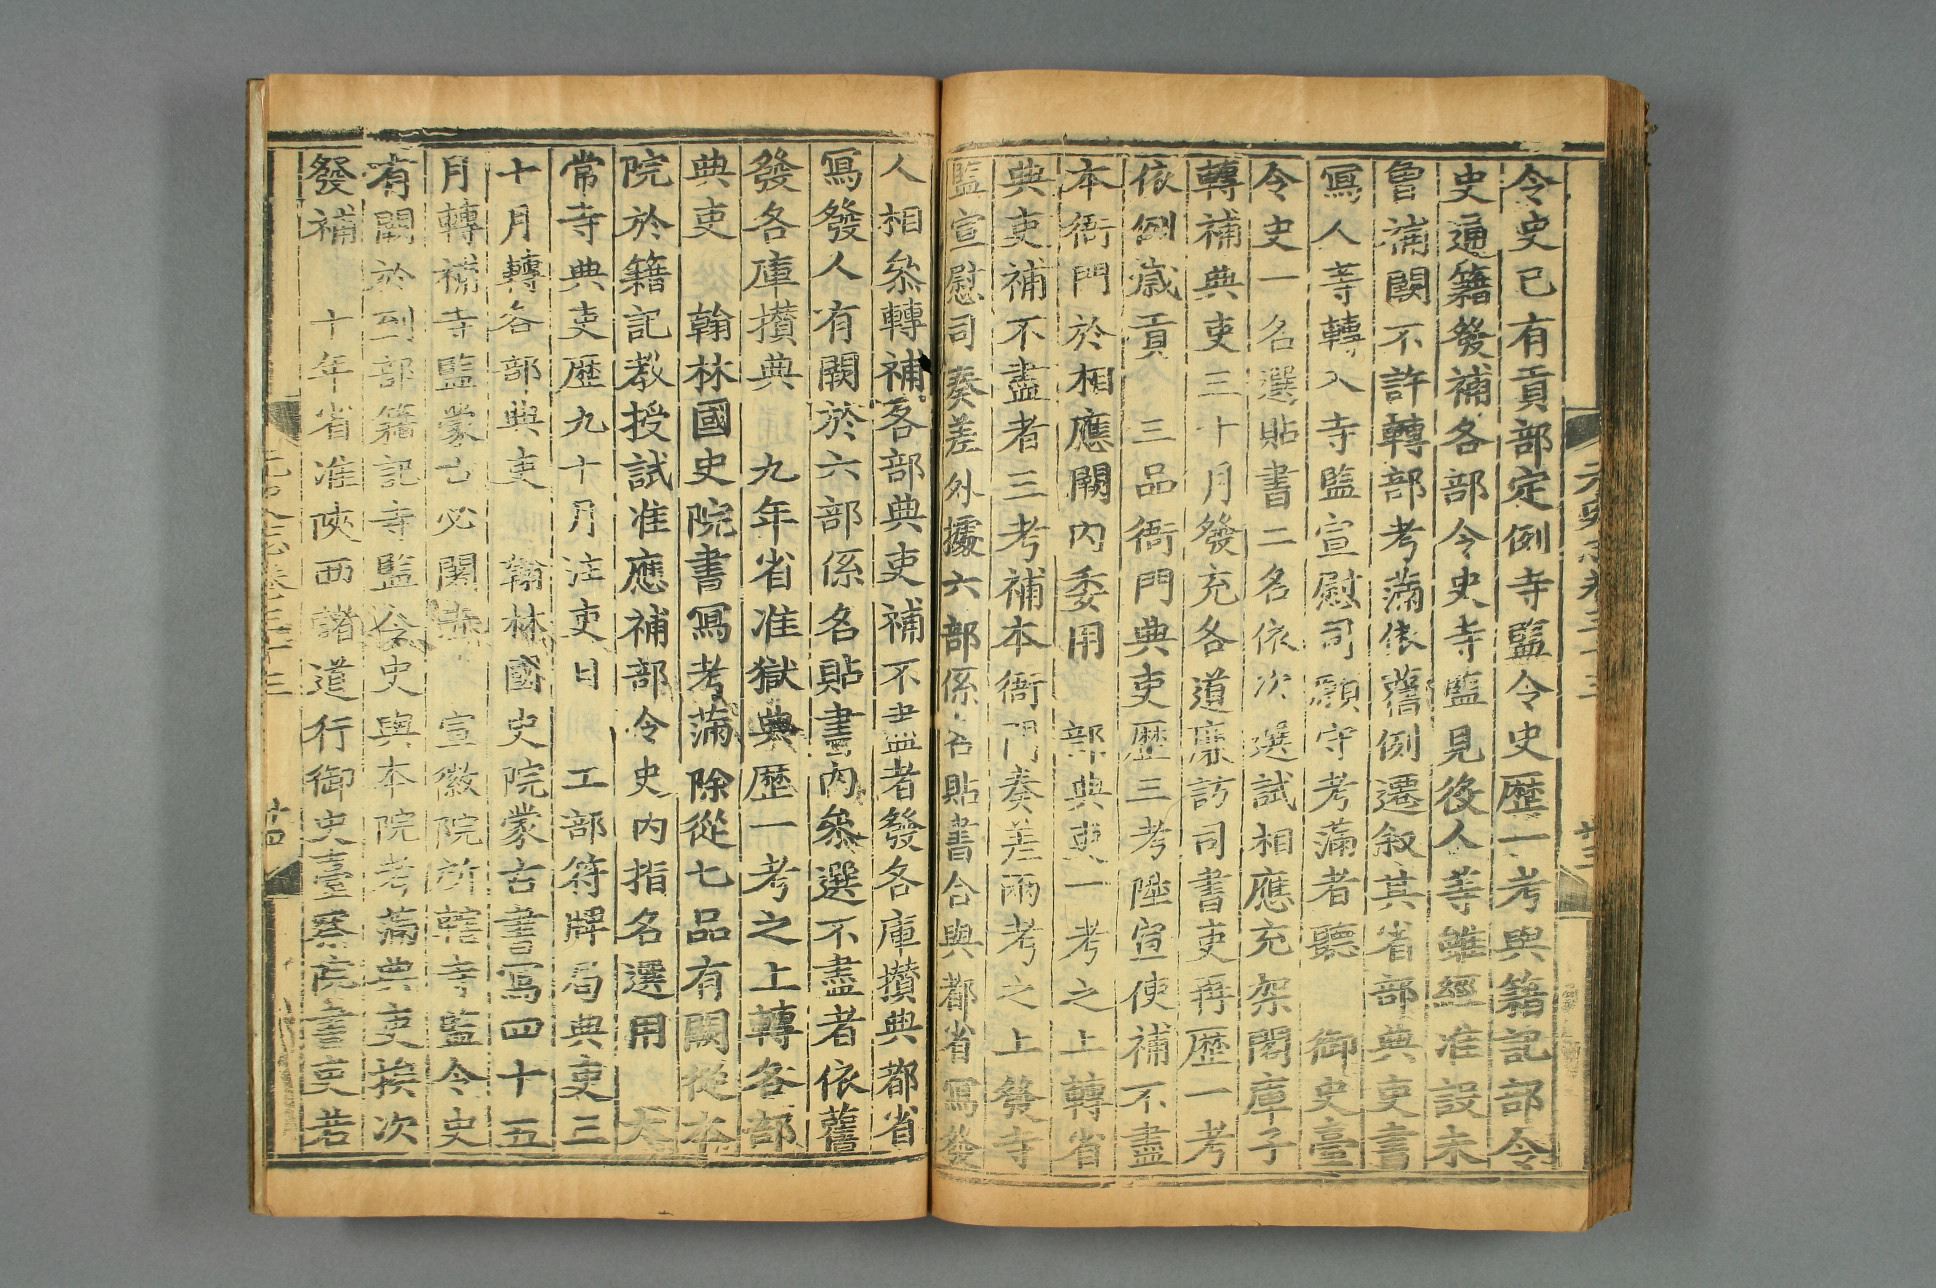 令史已有貢部定例寺監令史歷一考與籍記部令
史通籍發補各部令史寺監見役人等雖經准設未
曾補闕不許轉部考滿依舊例遷叙其省部典吏書
寫人等轉入寺監宣慰司願守考滿者聽　御史臺
令史一名選貼書二名依次選試相應充架閣庫子
轉補典吏三十月發充各道廉訪司書吏再歷一考
依例歲貢　三品衙門典吏歷三考陞宣使補不盡
本衙門於相應闕內委用　部典吏一考之上轉省
典吏補不盡者三考補本衙門奏差兩考之上發寺
監宣慰司奏差外據六部係名貼書合與都省寫發
人相叅轉補各部典吏補不盡者發各庫攢典都省
寫發人有闕於六部係名貼書內叅選不盡者依舊
發各庫攢典　九年省准獄典歷一考之上轉各部
典吏　翰林國史院書寫考滿除從七品有闕從本
院於籍記教授試准應補部令史內指名選用　太
常寺典吏歷九十月注吏目　工部符牌局典吏三
十月轉各部典吏　翰林國史院蒙古書寫四十五
月轉補寺監蒙古必闍赤　宣徽院所轄寺監令史
有闕於到部籍記寺監令史與本院考滿典吏挨次
發補　十年省准陝西諸道行御史臺察院書吏若
元史志卷三十三
廿三
元史志卷三十三
廿四